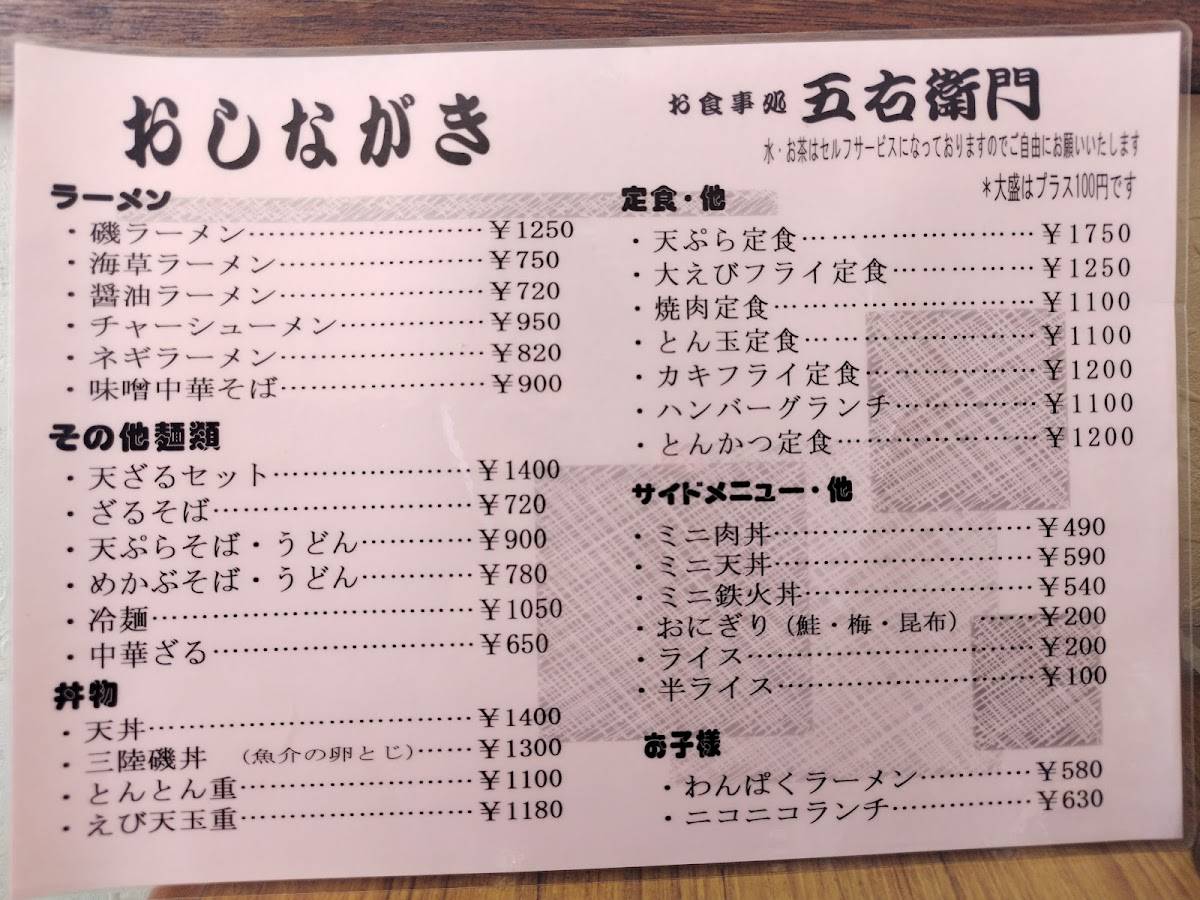 おしながき
お食事処 五右衛門
水・お茶はセルフサービスになっておりますのでご自由にお願いいたします
＊大盛はプラス100円です
ラーメン
・磯ラーメン……………………¥1250
・海草ラーメン…………………¥750
・醤油ラーメン…………………¥720
・チャーシューメン……………¥950
・ネギラーメン…………………¥820
・味噌中華そば…………………¥900
その他麺類
・天ざるセット…………………¥1400
・ざるそば………………………¥720
・天ぷらそば・うどん…………¥900
・めかぶそば・うどん…………¥780
・冷麺……………………………¥1050
・中華ざる………………………¥650
丼物
・天丼……………………………¥1400
・三陸磯丼　（魚介の卵とじ）……¥1300
・とんとん重……………………¥1100
・えび天玉重……………………¥1180
定食・他
・天ぷら定食……………………¥1750
・大えびフライ定食……………¥1250
・焼肉定食………………………¥1100
・とん玉定食……………………¥1100
・カキフライ定食………………¥1200
・ハンバーグランチ……………¥1100
・とんかつ定食…………………¥1200
サイドメニュー・他
・ミニ肉丼………………………¥490
・ミニ天丼………………………¥590
・ミニ鉄火丼……………………¥540
・おにぎり（鮭・梅・昆布）……¥200
・ライス…………………………¥200
・半ライス………………………¥100
お子様
・わんぱくラーメン…………¥580
・ニコニコランチ……………¥630